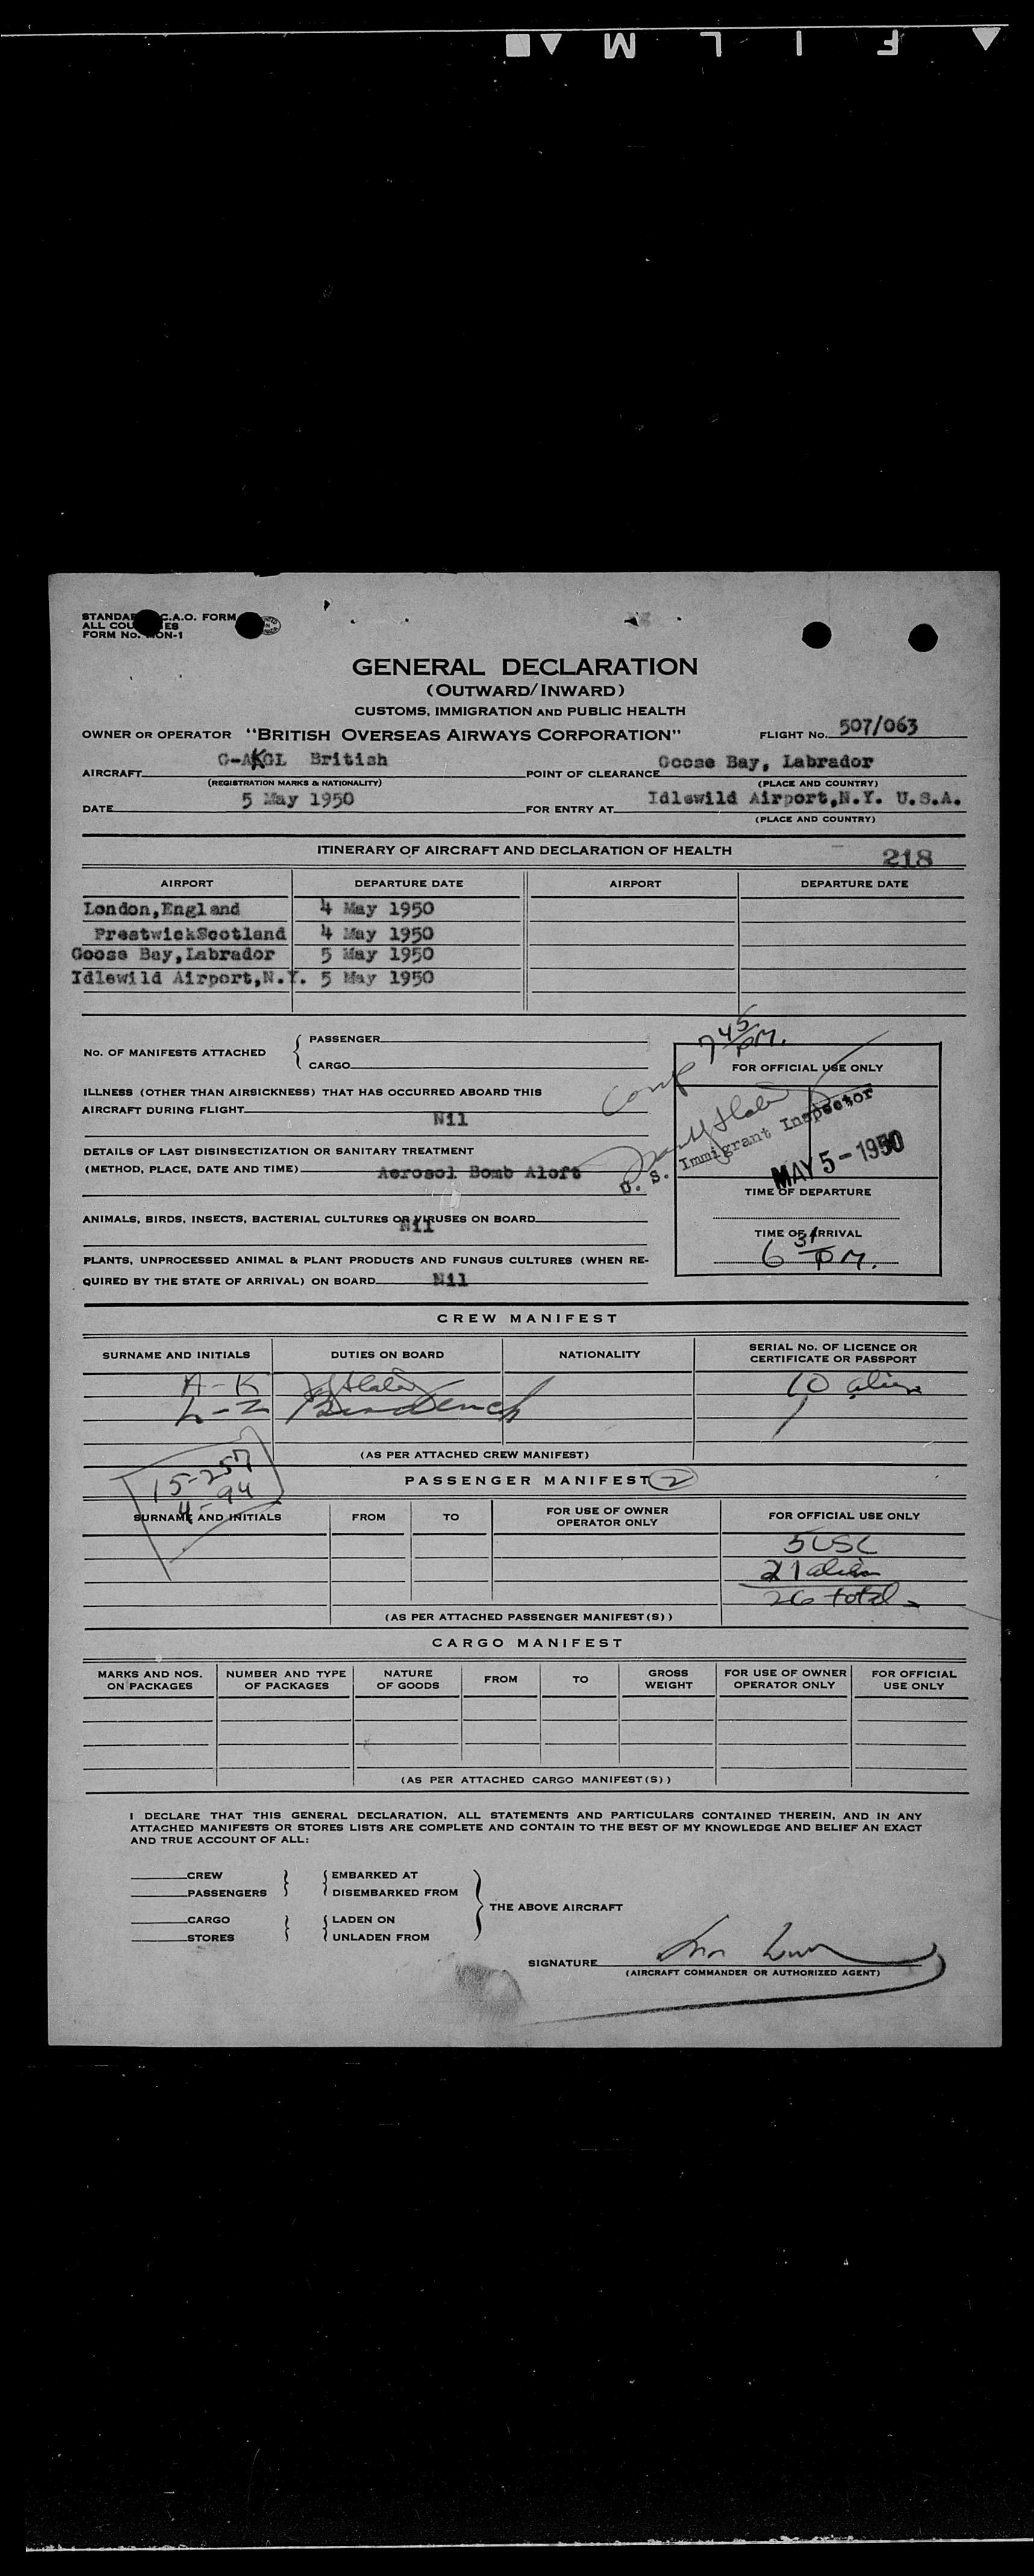 F I L M
STANDA C.A.O. FORM
ALL COU ES
FORM NO. ON-1
GENERAL DECLARATION
(OUTWARD/INWARD)
CUSTOMS, IMMIGRATION AND PUBLIC HEALTH
OWNER OR OPERATOR "BRITISH OVERSEAS AIRWAYS CORPORATION" FLIGHT NO. 507/063
AIRCRAFT G-AKGL British POINT OF CLEARANCE Goose Bay, Labrador
(REGISTRATION MARKS & NATIONALITY) (PLACE AND COUNTRY)
DATE 5 May 1950 FOR ENTRY AT Idlewild Airport,N.Y. U.S.A.
(PLACE AND COUNTRY)
ITINERARY OF AIRCRAFT AND DECLARATION OF HEALTH 218
AIRPORT DEPARTURE DATE AIRPORT DEPARTURE DATE
London,England 4 May 1950
PrestwickScotland 4 May 1950
Goose Bay,Labrador 5 May 1950
Idlewild Airport,N.Y. 5 May 1950
745 PM.
NO. OF MANIFESTS ATTACHED { PASSENGER
CARGO
FOR OFFICIAL USE ONLY
Comp
ILLNESS (OTHER THAN AIRSICKNESS) THAT HAS OCCURRED ABOARD THIS
AIRCRAFT DURING FLIGHT
Nil
U. S. Immigrant Inspector
MAY 5 - 1950
DETAILS OF LAST DISINSECTIZATION OR SANITARY TREATMENT
(METHOD, PLACE, DATE AND TIME) Aerosol Bomb Aloft
TIME OF DEPARTURE
ANIMALS, BIRDS, INSECTS, BACTERIAL CULTURES OR VIRUSES ON BOARD
Nil
TIME OF ARRIVAL
6 31 PM.
PLANTS, UNPROCESSED ANIMAL & PLANT PRODUCTS AND FUNGUS CULTURES (WHEN RE-
QUIRED BY THE STATE OF ARRIVAL) ON BOARD Nil
CREW MANIFEST
SURNAME AND INITIALS DUTIES ON BOARD NATIONALITY SERIAL NO. OF LICENCE OR
CERTIFICATE OR PASSPORT
A-K 10 alien
L-Z
(AS PER ATTACHED CREW MANIFEST)
15-257
4-94
PASSENGER MANIFEST 2
SURNAME AND INITIALS FROM TO FOR USE OF OWNER
OPERATOR ONLY FOR OFFICIAL USE ONLY
5 USC
21 alien
26 total
(AS PER ATTACHED PASSENGER MANIFEST(S))
CARGO MANIFEST
MARKS AND NOS.
ON PACKAGES NUMBER AND TYPE
OF PACKAGES NATURE
OF GOODS FROM TO GROSS
WEIGHT FOR USE OF OWNER
OPERATOR ONLY FOR OFFICIAL
USE ONLY
(AS PER ATTACHED CARGO MANIFEST(S))
I DECLARE THAT THIS GENERAL DECLARATION, ALL STATEMENTS AND PARTICULARS CONTAINED THEREIN, AND IN ANY
ATTACHED MANIFESTS OR STORES LISTS ARE COMPLETE AND CONTAIN TO THE BEST OF MY KNOWLEDGE AND BELIEF AN EXACT
AND TRUE ACCOUNT OF ALL:
CREW } { EMBARKED AT
PASSENGERS } { DISEMBARKED FROM
THE ABOVE AIRCRAFT
CARGO } { LADEN ON
STORES } { UNLADEN FROM
SIGNATURE
(AIRCRAFT COMMANDER OR AUTHORIZED AGENT)